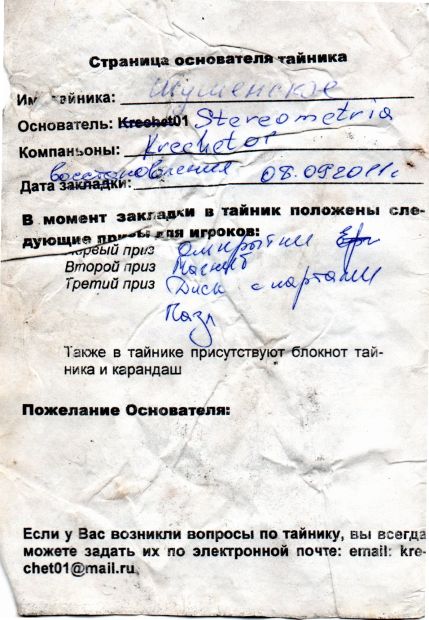 Страница основателя тайника
Имя тайника: Шушенское
Основатель: Krechet01 Stereometria
Компаньоны: Krechetor
восстановления
Дата закладки: 08.092011г
В момент закладки в тайник положены сле-
дующие призы для игроков:
Первый приз открытки
Второй приз Магнит
Третий приз Диск с картами
Пазл
Также в тайнике присутствуют блокнот тай-
ника и карандаш
Пожелание Основателя:
Если у Вас возникли вопросы по тайнику, вы всегда
можете задать их по электронной почте: email: kre-
chet01@mail.ru